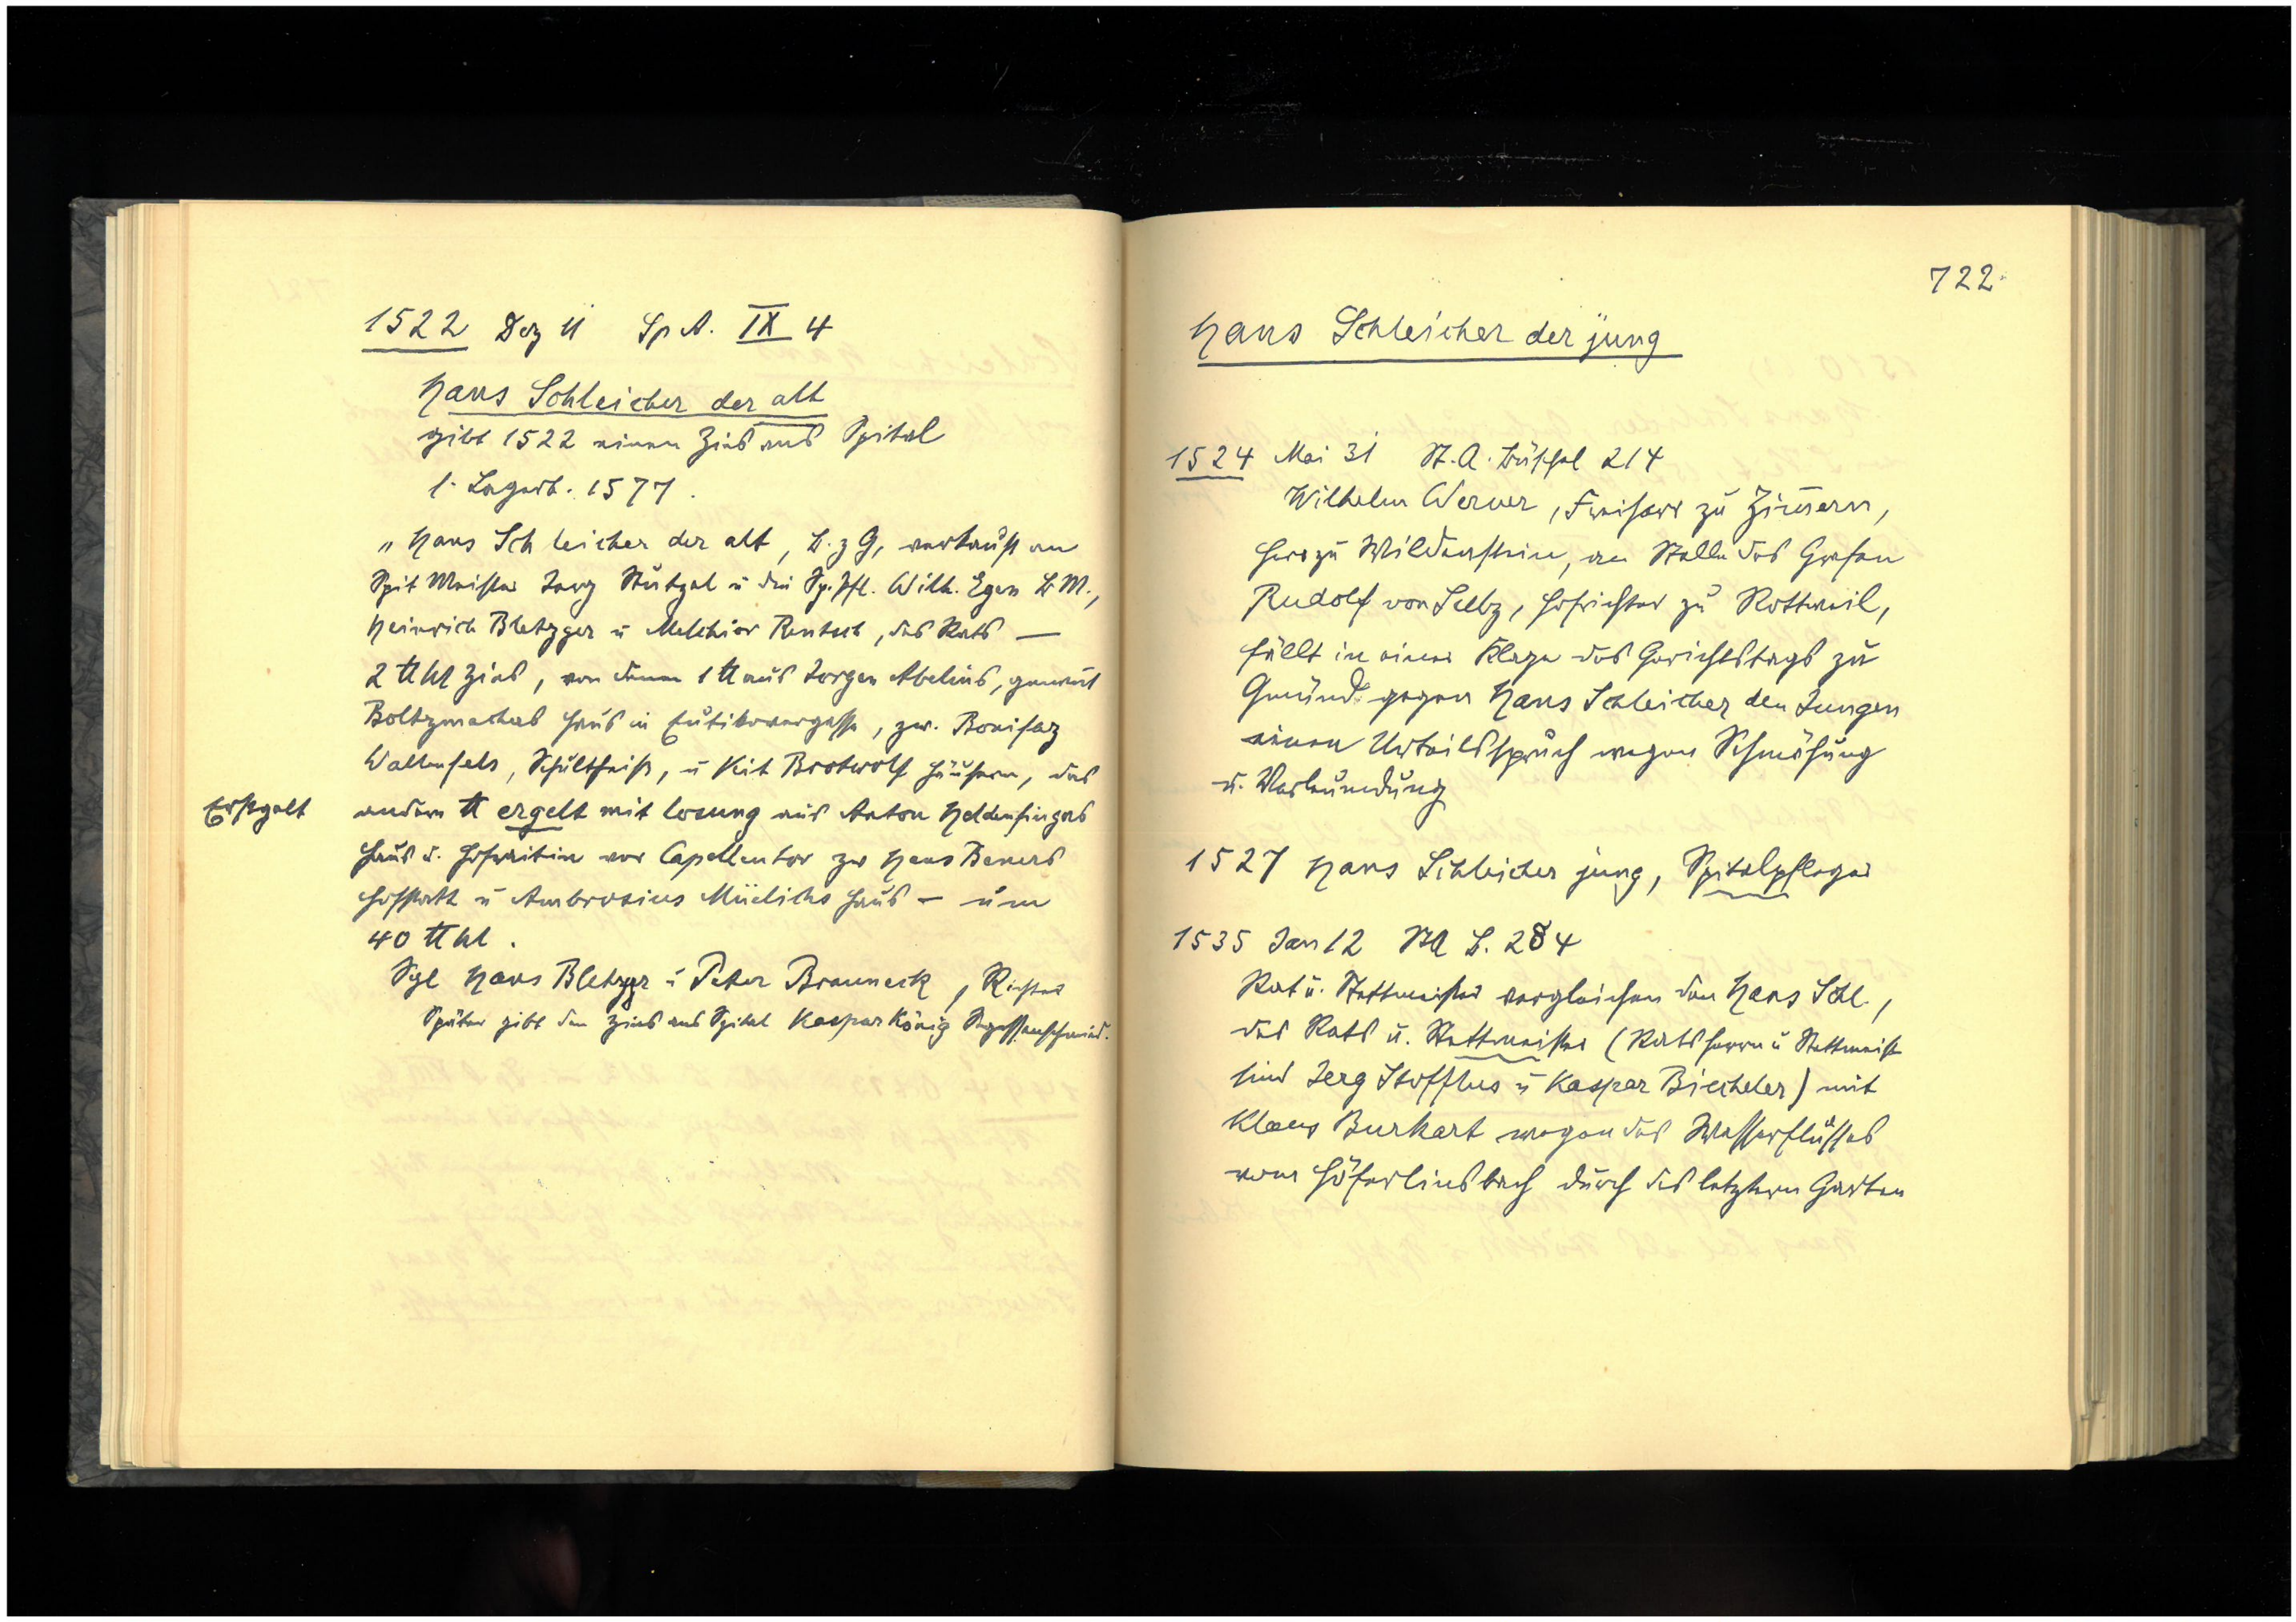 1522 Dez 11 Sp A. IX 4
Hans Schleicher der alt
gibt 1522 einen Zins ans Spital
l. Lagerb. 1577.
„Hans Schleicher der alt, B. z G, verkauft an
Spit Meister Jorg Stützel u die Sp. Pfl. Wilh. Egen BM.,
Heinrich Bletzger u Melchior Rentsch, des Rats —
2 ℔ hl Zins, von denen 1 ℔ aus Jorgen Abelins, genannt
Boltzmachers Haus in Eutikovergasse, zw. Bonifaz
Wallenfels, Schultheiß, u Veit Brotwolf Häusern, das
Erstgelt
andere ℔ ergelt mit losung aus Anton Heldenfingers
Haus u. Hofraitin vor Capellentor zw Hans Beners
Hofstatt u Ambrosius Müelichs Haus — um
40 ℔ hl.
Sgl Hans Bletzger u Peter Brauneck, Richter
Später gibt den Zins ans Spital Kaspar König Segessenschmied.
722
Hans Schleicher der jung
1524 Mai 31 St. A. Büschel 214
Wilhelm Werner, Freiherr zu Zimern,
Herr zu Wildenstein, an Stelle des Grafen
Rudolf von Sulz, Hofrichter zu Rottweil,
fällt in einer Klage des Gerichtstags zu
Gmünd gegen Hans Schleicher den Jungen
einen Urteilsspruch wegen Schmähung
u. Verleumdung
1527 Hans Schleicher jung, Spitalpfleger
1535 Jan 12 StA B. 284
Rat u. Stettmeister vergleichen den Hans Schl.,
des Rats u. Stettmeister (Ratsherrn u Stettmeist
sind Jerg Stofflus u Kaspar Biecheler) mit
Klaus Burkart wegen des Wasserflusses
vom Höferlinsbach durch des letztern Garten